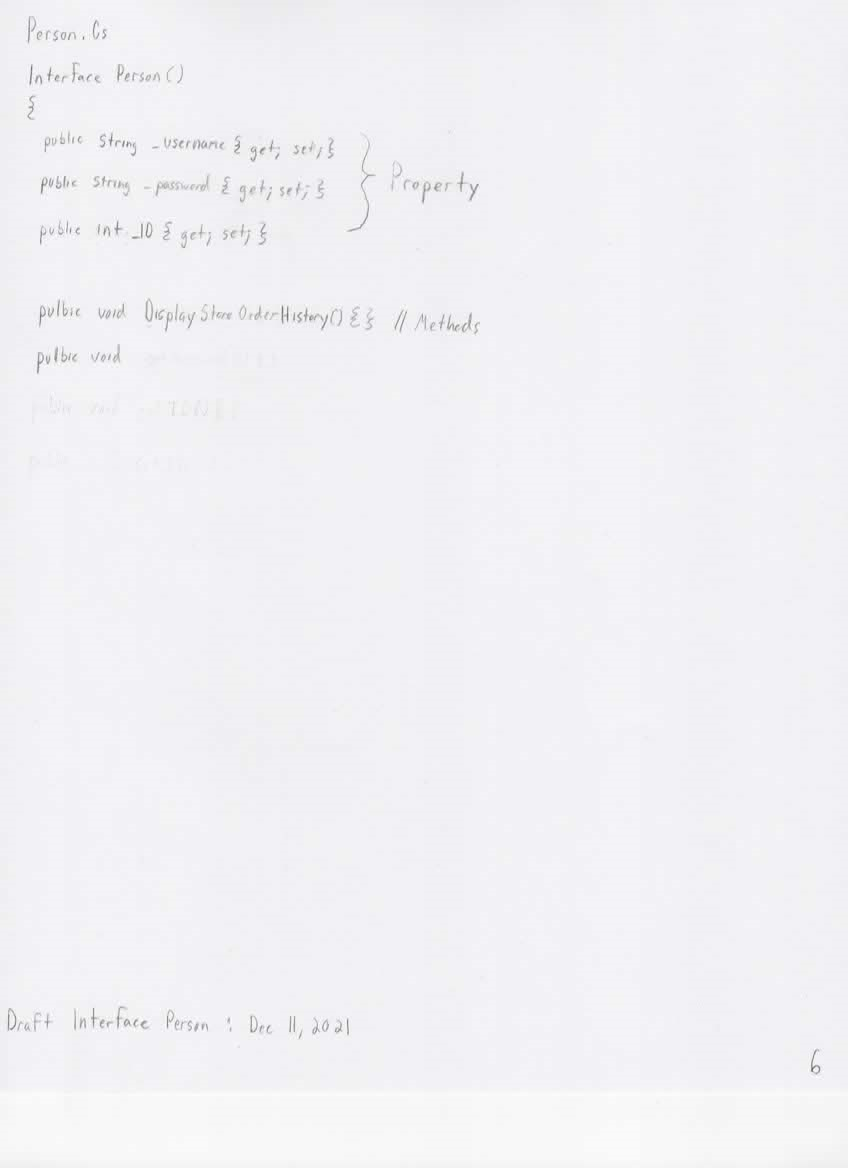 Person.Cs
Interface Person()
{
public String _username { get; set; }
public String _password { get; set; }
Property
public int _ID { get; set; }
pulbic void DisplayStoreOrderHistory() {} // Methods
pulbic void
Draft Interface Person : Dec 11, 2021
6